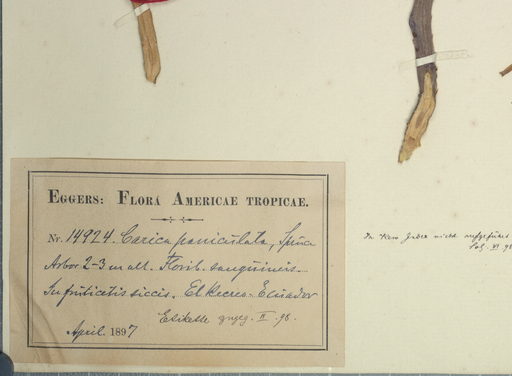 EGGERS: FLORA AMERICAE TROPICAE.
Nr. 14924. Carica paniculata, Spruce
Arbor 2-3 m alt. Florib. sanguineis.
In fruticetis siccis. El Recreo. Ecuador
Etikette gngeg. II. 98.
April. 1897
In Kew Index nicht aufgeführt
VI 98